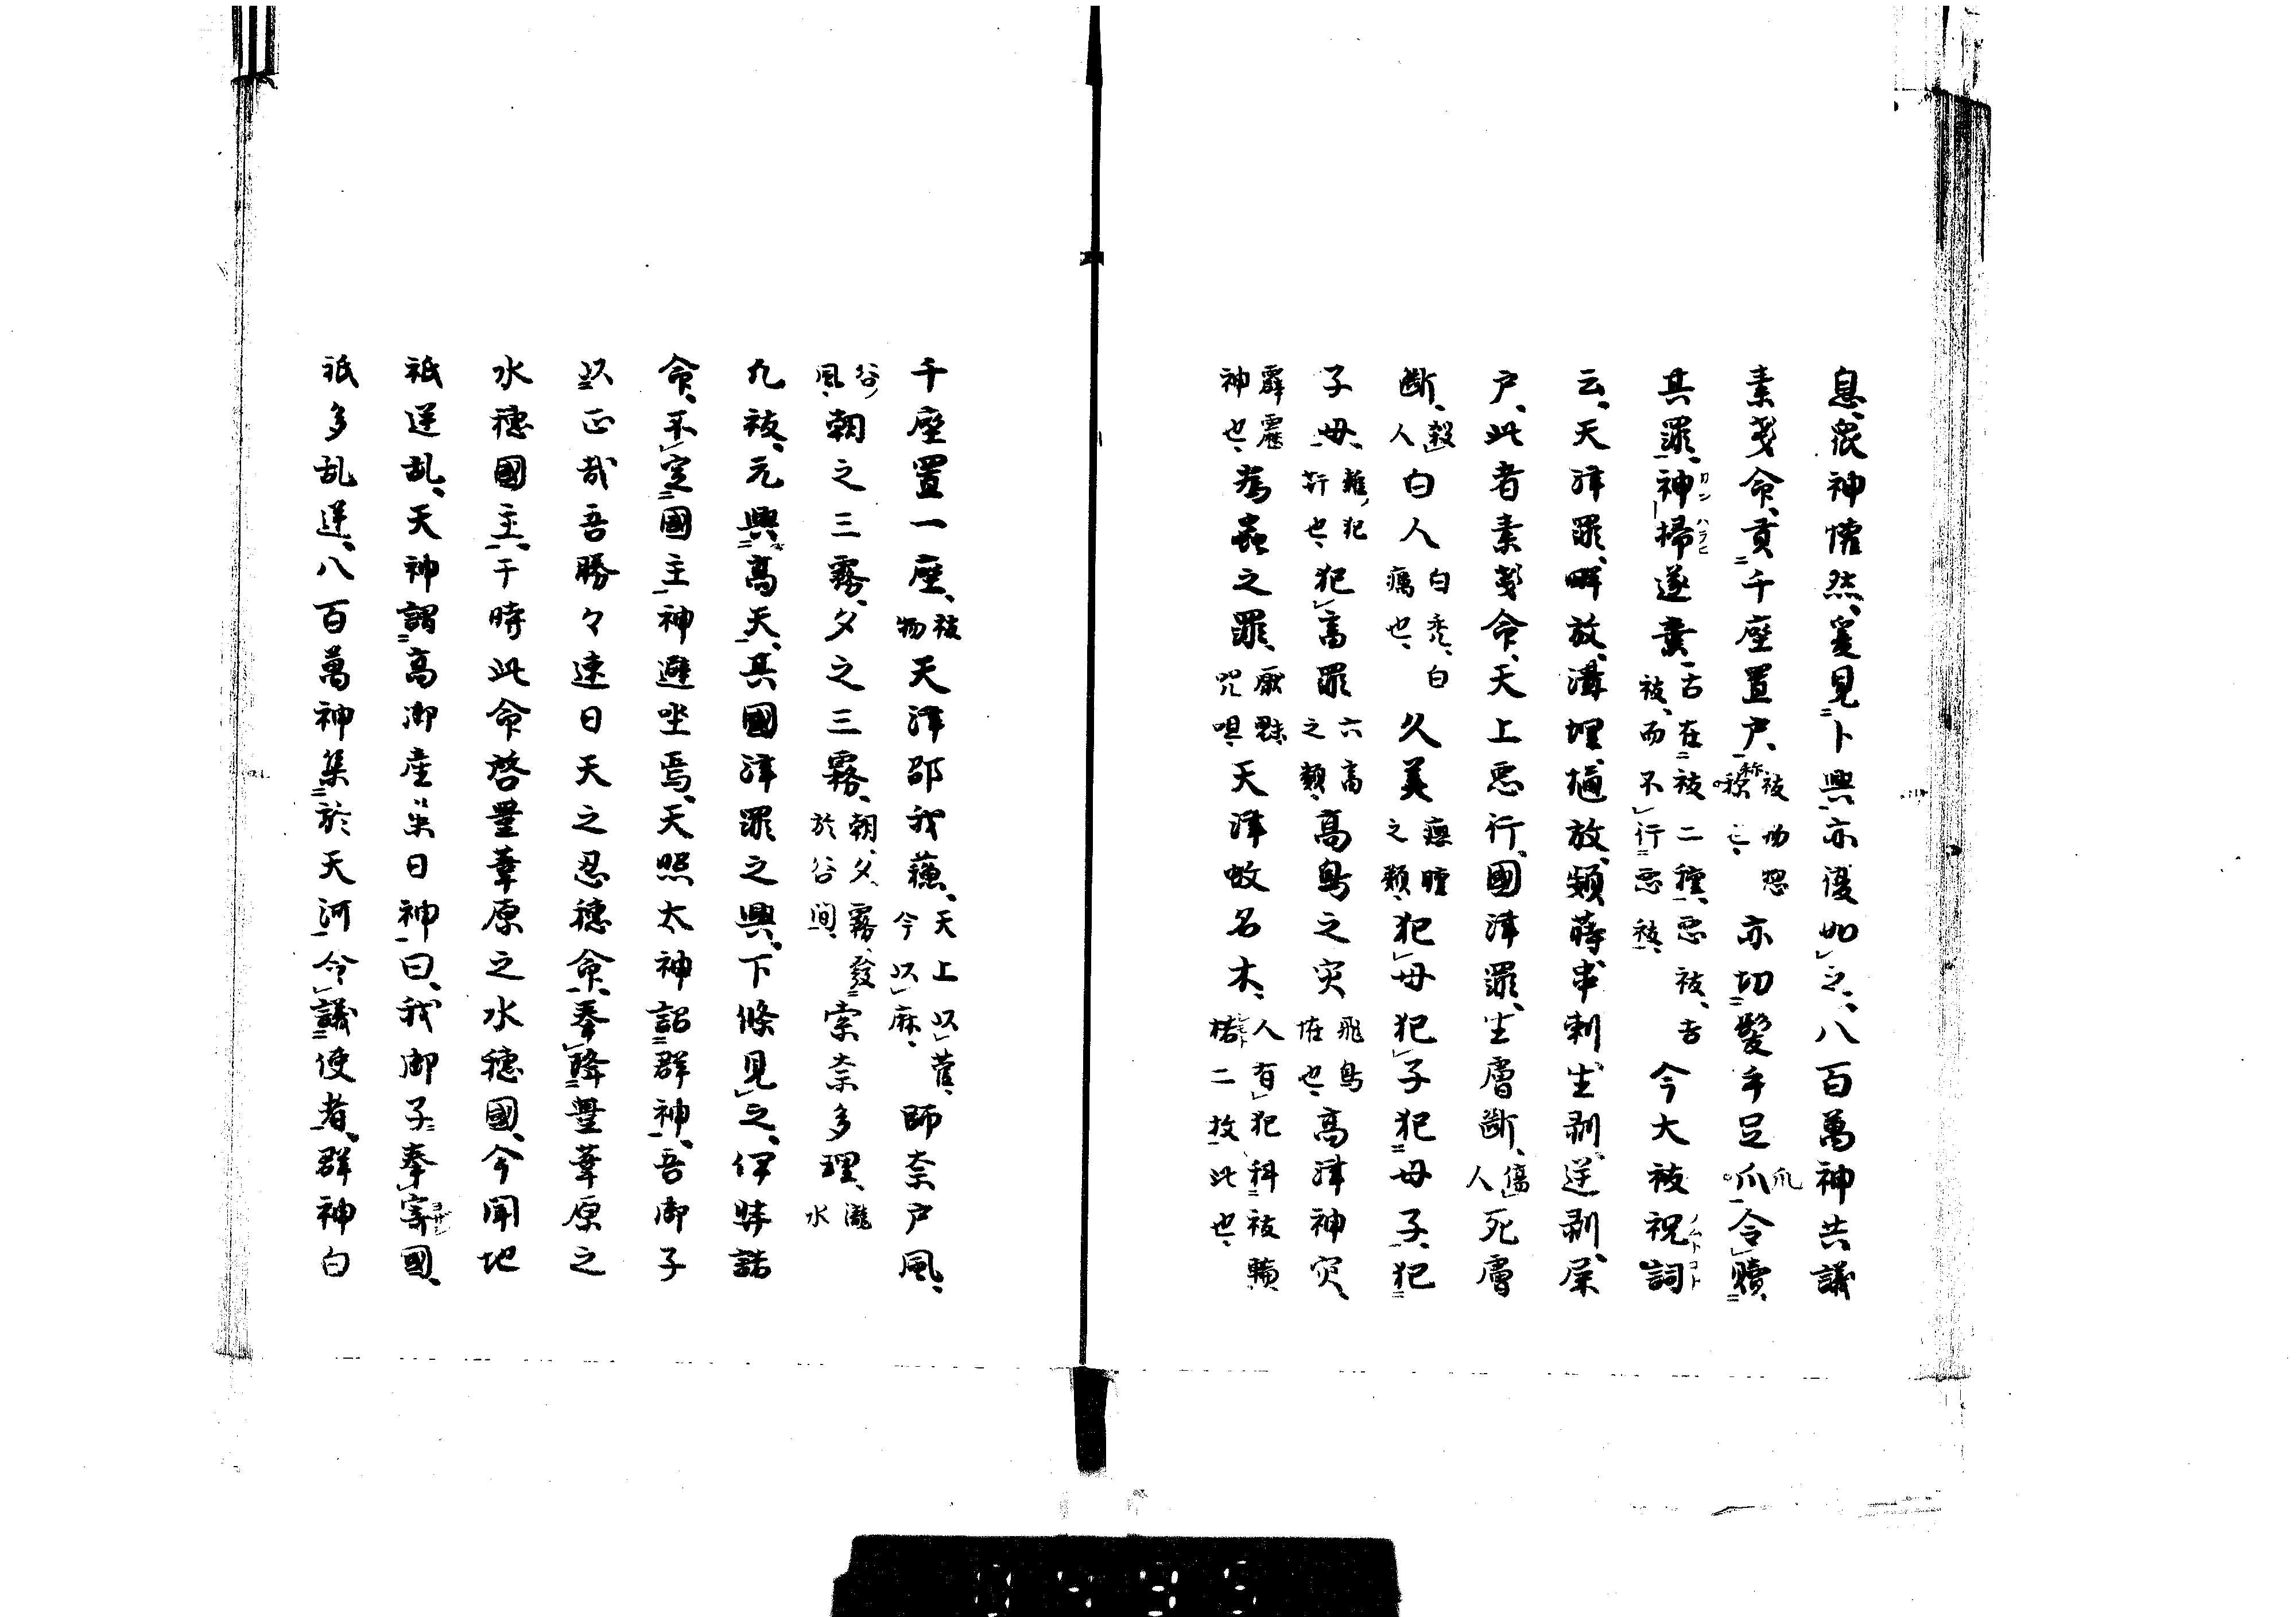 息、衆神懽然、爰見卜興、亦復如之、八百萬神共議
素戔命、貢千座置戸、祓物惣称也、亦切髪手足爪令贖
其罪、神掃遂棄、古在祓二種、悪祓、吉祓、而不行悪祓、今大祓祝詞
云、天津罪、畔放、溝埋、樋放、頻蒔、串刺、生剥、逆剥、屎
戸、此者素戔命、天上悪行、國津罪、生膚断、傷人死膚
断、殺人白人白禿、白癘也、久美瘜腫之類、犯母犯子犯母子、犯
子母、難、犯奸也、犯畜罪六畜之類、高鳥之灾飛鳥怪也、高津神灾、
霹靂神也、為蟲之罪、厭魅咒咀、天津敬名木、人有犯科祓贖、楉二枚、此也、
千座置一座、祓物天津邵我蘓、天上以菅、今以麻、師奈戸風、
谷ノ風、朝之三霧、夕之三霧、朝、夕、霧、發於谷間、索奈多理、瀧水
九祓、元興高天、其國津罪之興、下條見之、伊弉諾
命、不定國主、神避坐焉、天照太神詔群神、吾御子
以正哉吾勝々速日天之忍穂命、奉降豊葦原之
水穂國主、于時此命啓豊葦原之水穂國、今聞地
祇逆乱、天神謂高御産巣日神曰、我御子奉寄國、
祇多乱逆、八百萬神集於天河、令議使者、群神白